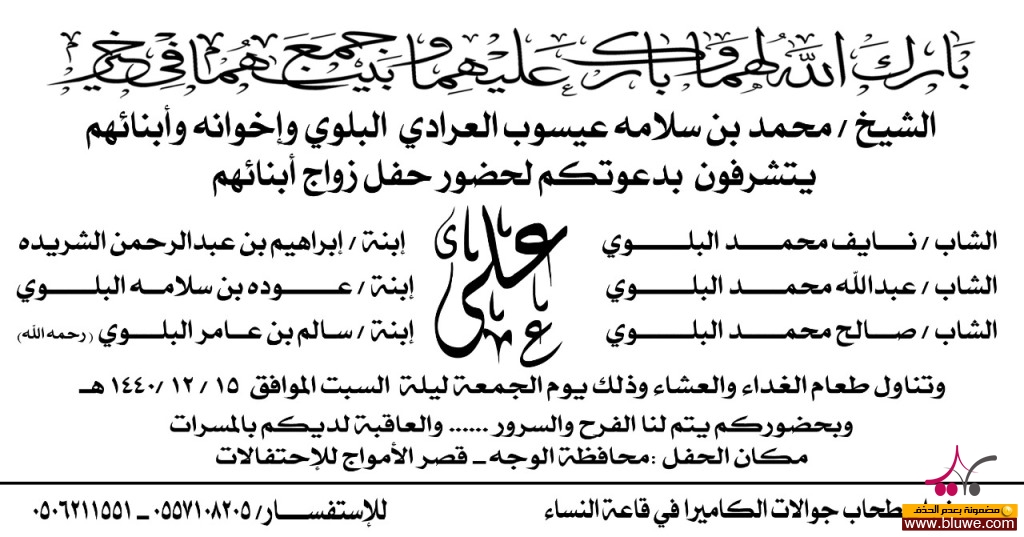 بارك الله لهما وبارك عليهما وجمع بينهما في خير
الشيخ / محمد بن سلامه عيسوب العرادي البلوي وإخوانه وأبنائهم
يتشرفون بدعوتكم لحضور حفل زواج أبنائهم
الشاب / نايف محمد البلوي على إبنة / إبراهيم بن عبدالرحمن الشريده
الشاب / عبدالله محمد البلوي إبنة / عوده بن سلامه البلوي
الشاب / صالح محمد البلوي إبنة / سالم بن عامر البلوي (رحمه الله)
وتناول طعام الغداء والعشاء وذلك يوم الجمعة ليلة السبت الموافق ١٥ / ١٢ /١٤٤٠ هـ
وبحضوركم يتم لنا الفرح والسرور ...... والعاقبة لديكم بالمسرات
مكان الحفل :محافظة الوجه - قصر الأمواج للإحتفالات
طحاب جوالات الكاميرا في قاعة النساء للإستفسار/ ٠٥٥٧١٠٨٢٠٥ - ٠٥٠٦٢١١٥٥١
مضمونة بعدم الحذف
www.bluwe.com